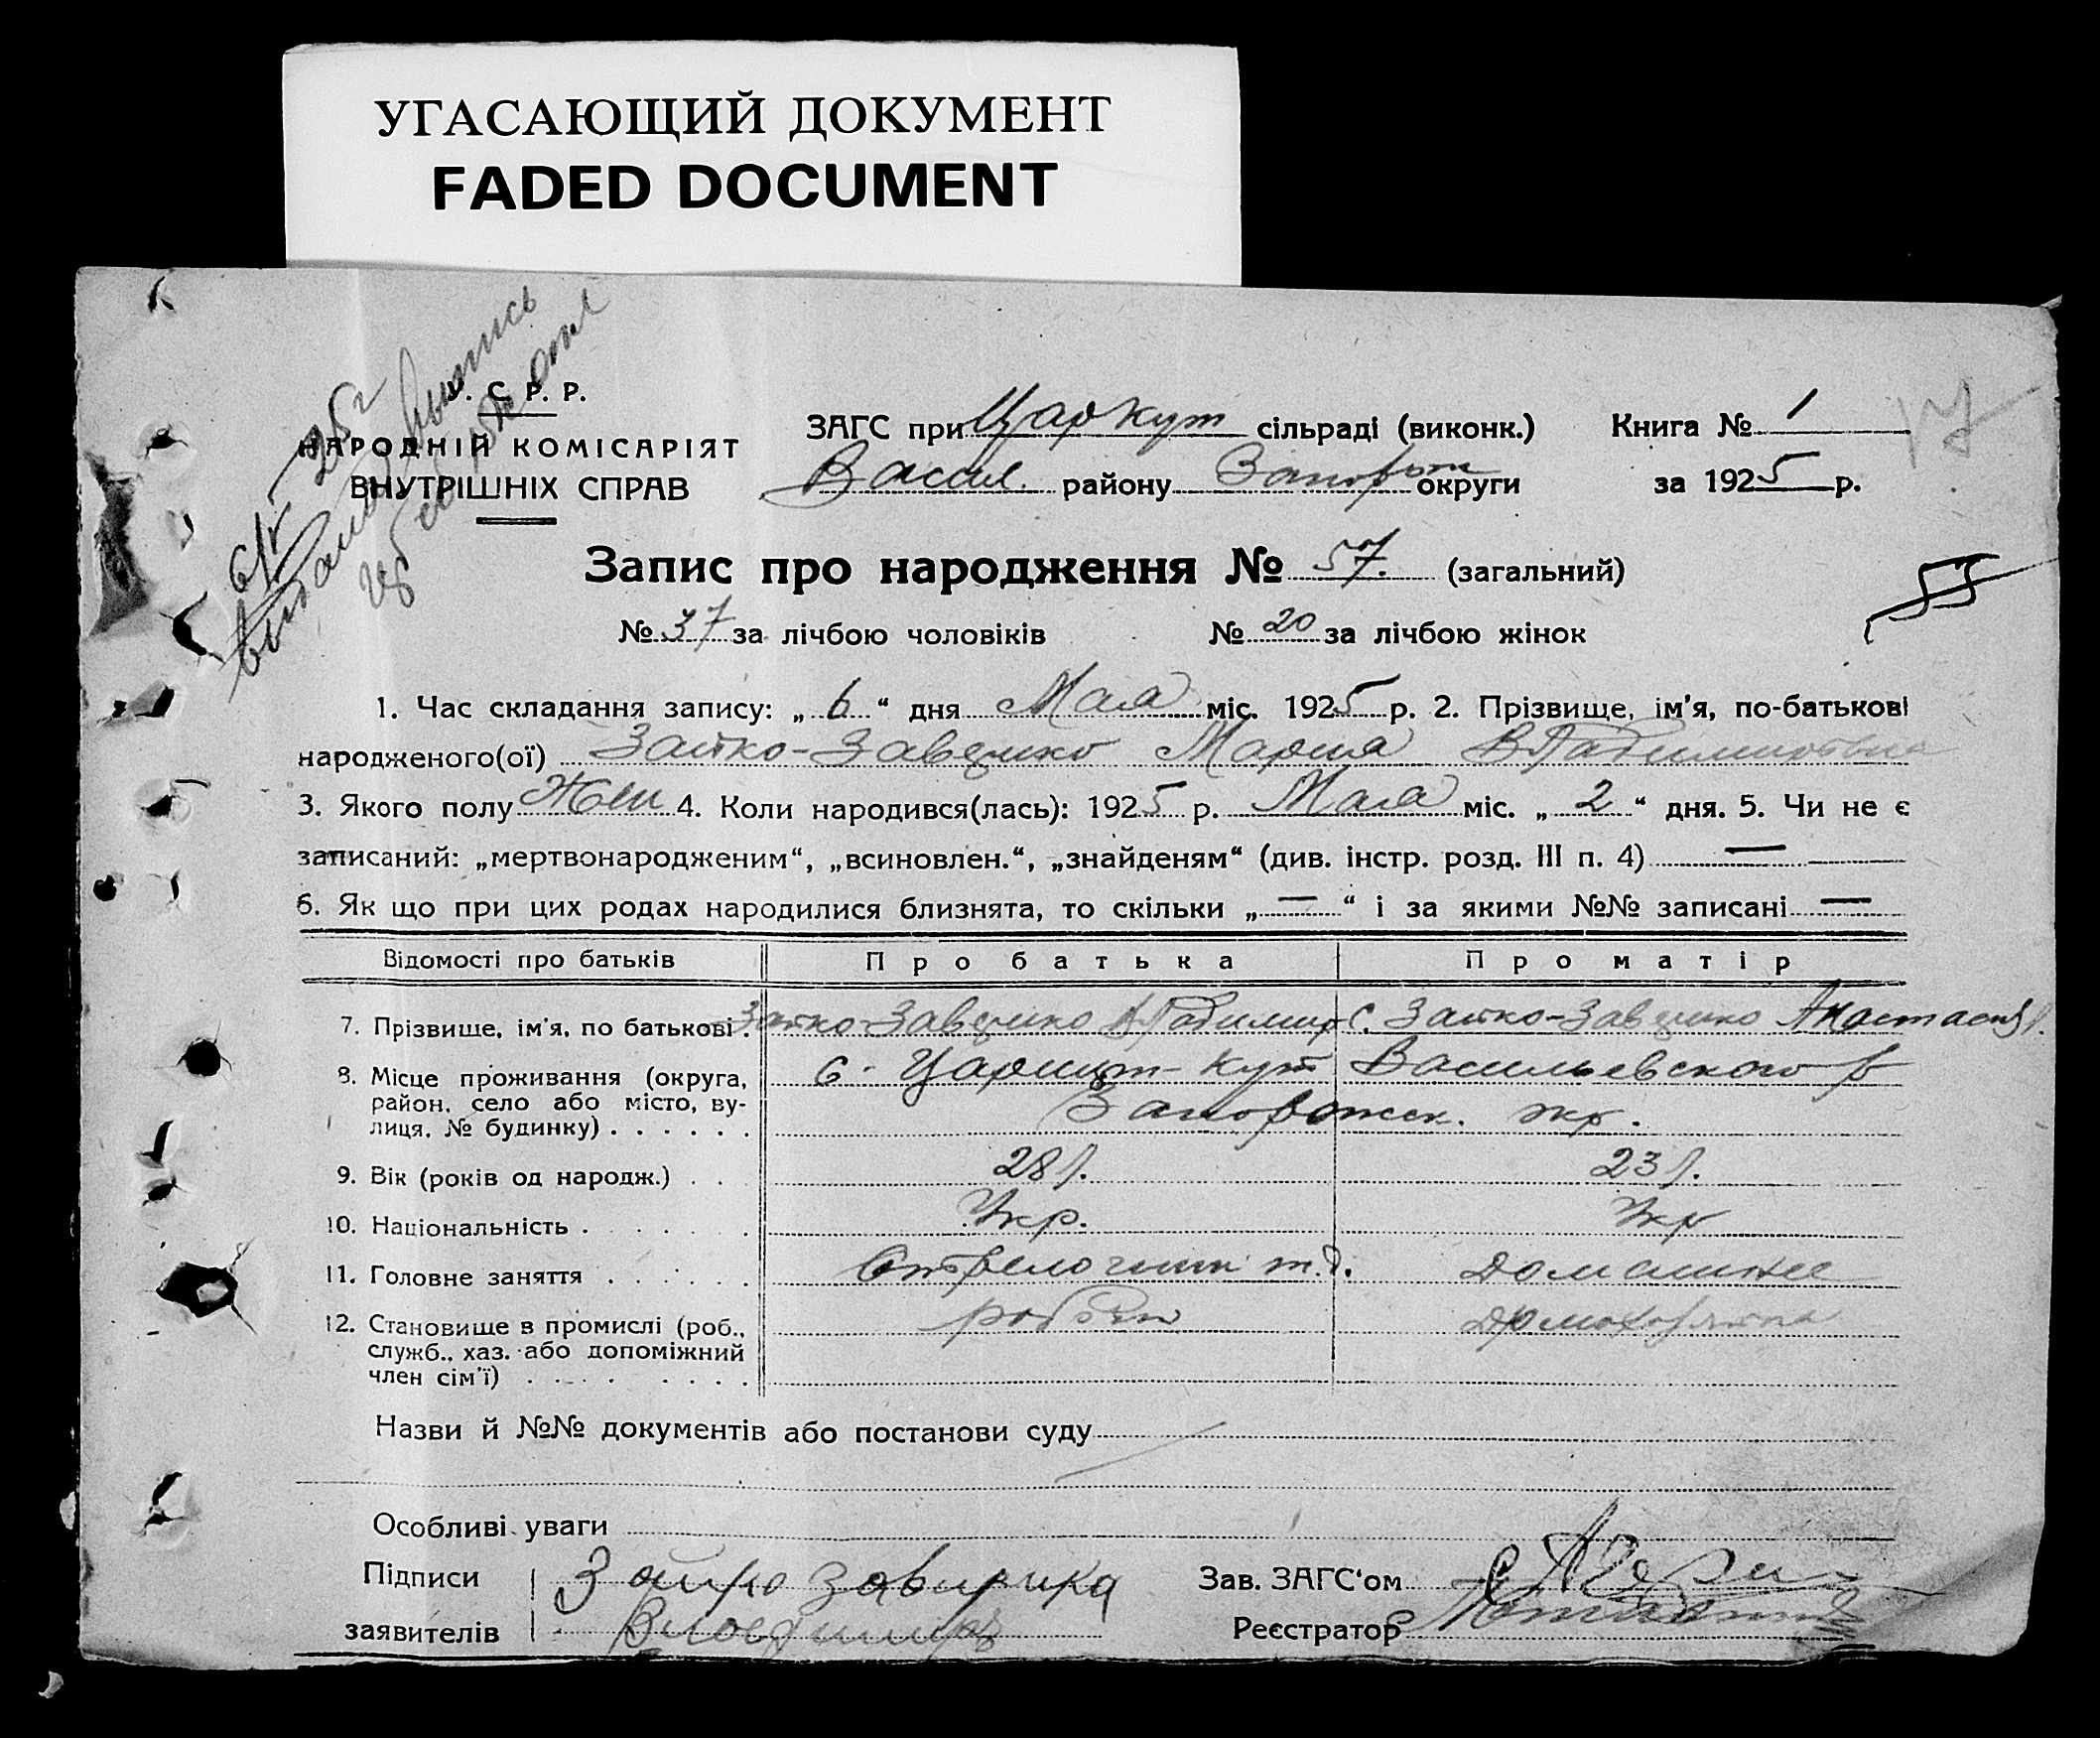 УГАСАЮЩИЙ ДОКУМЕНТ
FADED DOCUMENT
У. С. Р. Р.
НАРОДНІЙ КОМІСАРІЯТ
ВНУТРІШНІХ СПРАВ
ЗАГС при Царкут сільраді (виконк.) Книга № 1
Васил. району Запорож округи за 1925 р.
Запис про народження № 57. (загальний)
№ 37 за лічбою чоловіків № 20 за лічбою жінок
55
1. Час складання запису: „ 6 “ дня Мая міс. 1925 р. 2. Прізвище, ім'я, по-батькові
народженого(ої) Зайко- Мария Владимировна
3. Якого полу Жен 4. Коли народився(лась): 1925 р. Мая міс. „ 2 “ дня. 5. Чи не є
записаний: „мертвонародженим“, „всиновлен.“, „знайденям“ (див. інстр. розд. III п. 4) —
6. Як що при цих родах народилися близнята, то скільки „ — “ і за якими №№ записані —
Відомості про батьків Про батька Про матір
7. Прізвище, ім'я, по батькові . Зайко- Владимир С. Зайко- Анастасия
8. Місце проживання (округа, с. Царицын-Кут Васильевского р
район, село або місто, ву- Запорожск. окр.
лиця, № будинку) . . . . . .
9. Вік (років од народж.) . . 28 л. 23 л.
10. Національність . . . . . . Укр. Укр
11. Головне заняття . . . . . . Стрелочник ж.д. Домашнее
12. Становище в промислі (роб., рабоч домохозяйка
служб., хаз. або допоміжний
член сім'ї) . . . . . . . .
Назви й №№ документів або постанови суду
Особливі уваги
Підписи Зайко Завирика Зав. ЗАГС'ом
заявителів Реєстратор